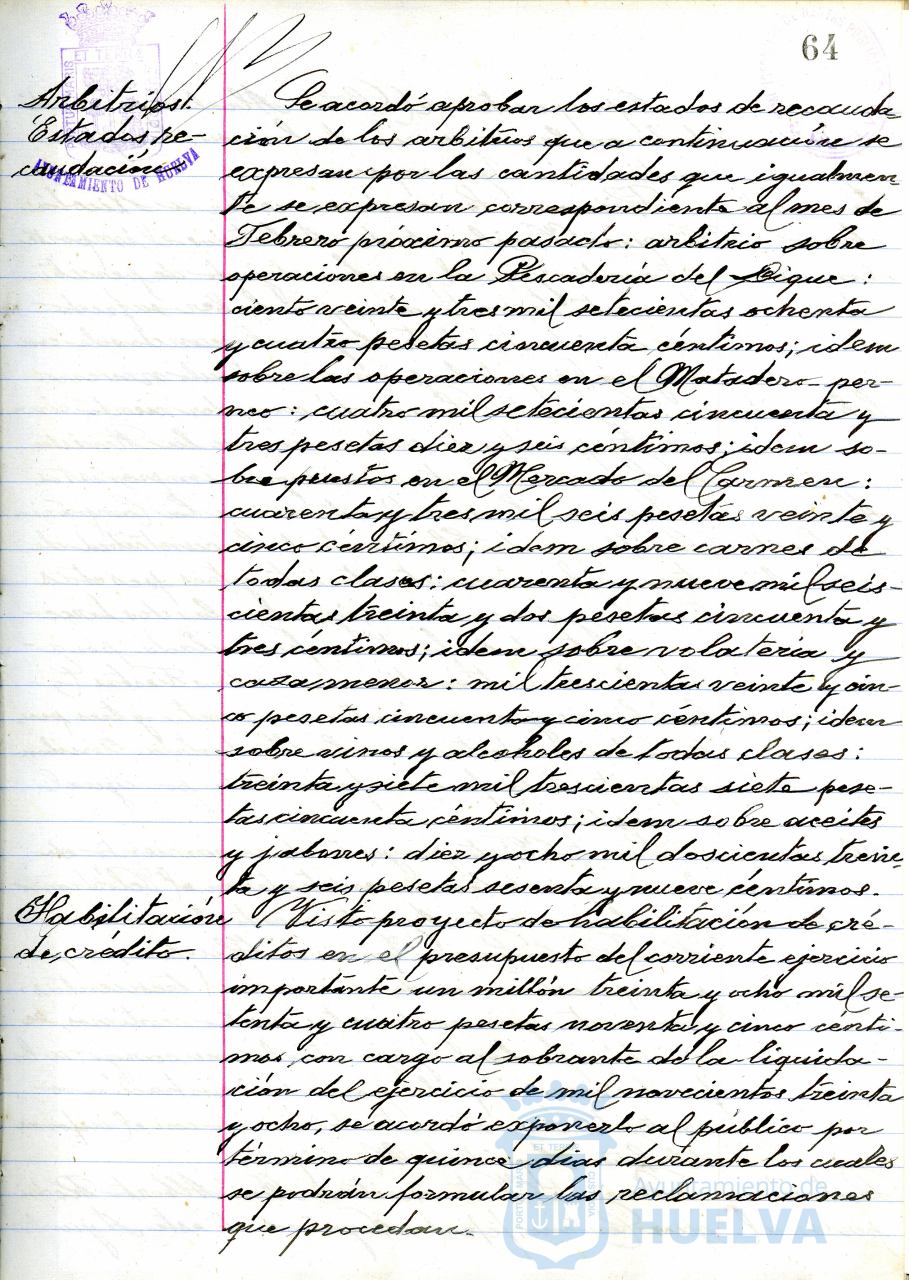 64
Arbitrios.
Estados re-
caudación.
AYUNTAMIENTO DE HUELVA
Se acordó aprobar los estados de recauda-
ción de los arbitrios que a continuación se
expresan por las cantidades que igualmen-
te se expresan correspondiente al mes de
Febrero próximo pasado: arbitrio sobre
operaciones en la Pescadería del Dique:
ciento veinte y tres mil setecientas ochenta
y cuatro pesetas cincuenta céntimos; idem
sobre las operaciones en el Matadero per-
neo: cuatro mil setecientas cincuenta y
tres pesetas diez y seis céntimos; idem so-
bre puestos en el Mercado del Carmen:
cuarenta y tres mil seis pesetas veinte y
cinco céntimos; idem sobre carnes de
todas clases: cuarenta y nueve mil seis-
cientas treinta y dos pesetas cincuenta y
tres céntimos; idem sobre volatería y
caza menor: mil trescientas veinte y cin-
co pesetas cincuenta y cinco céntimos; idem
sobre vinos y alcoholes de todas clases:
treinta y siete mil trescientas siete pese-
tas cincuenta céntimos; idem sobre aceites
y jabones: diez y ocho mil doscientas trein-
ta y seis pesetas sesenta y nueve céntimos.
Habilitación
de crédito.
Visto proyecto de habilitación de cré-
ditos en el presupuesto del corriente ejercicio
importante un millón treinta y ocho mil se-
tenta y cuatro pesetas noventa y cinco cénti-
mos, con cargo al sobrante de la liquida-
ción del ejercicio de mil novecientos treinta
y ocho, se acordó exponerlo al público por
término de quince días durante los cuales
se podrán formular las reclamaciones
que procedan.
Ayuntamiento de
HUELVA